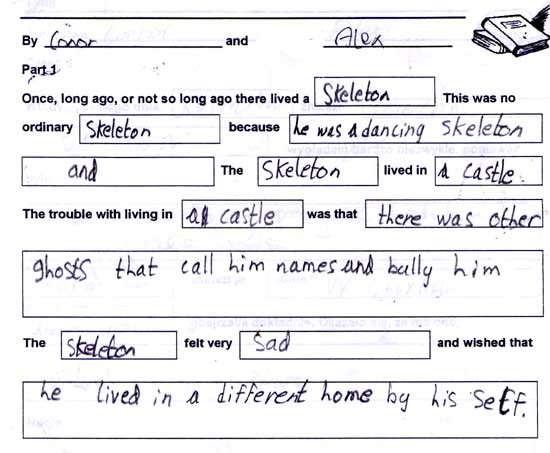 By Conor and Alex
Part 1
Once, long ago, or not so long ago there lived a Skeleton This was no
ordinary Skeleton because he was a dancing skeleton
and The Skeleton lived in a castle.
The trouble with living in a castle was that there was other
ghosts that call him names and bully him
The Skeleton felt very Sad and wished that
he lived in a different home by his self.